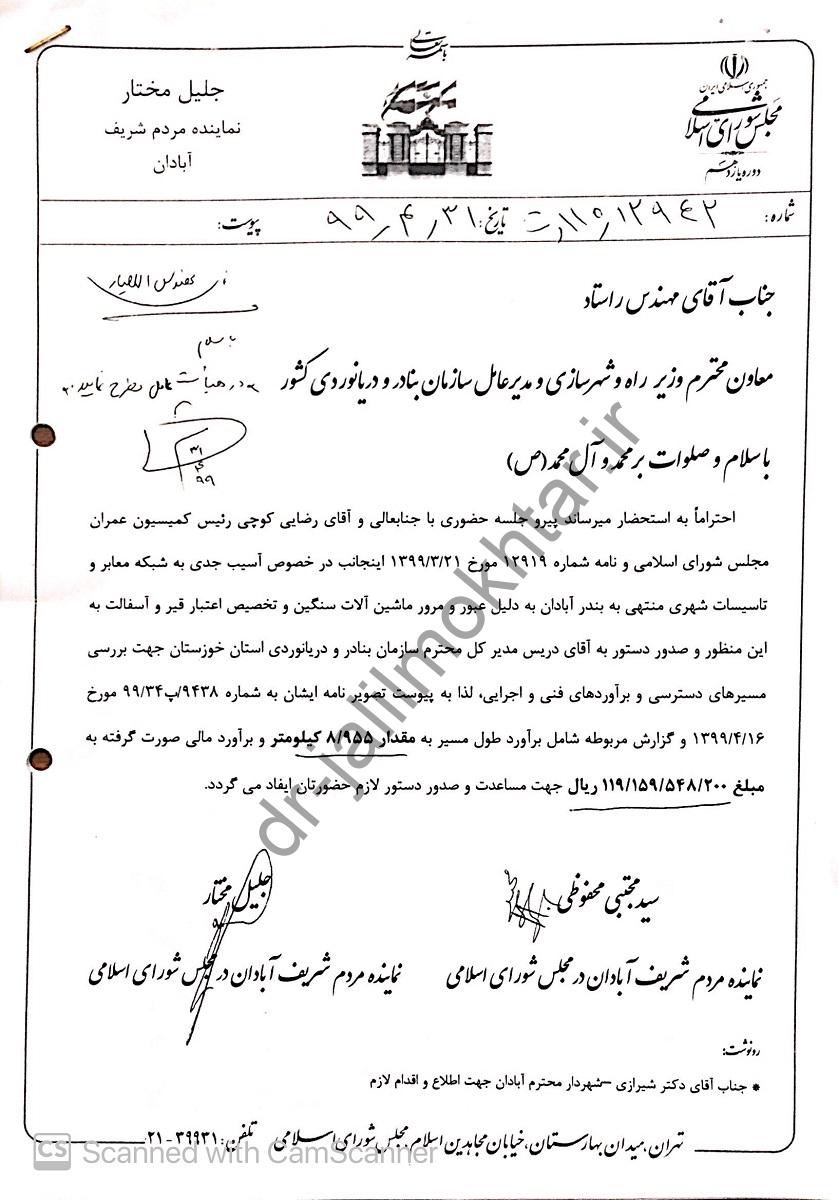 باسمه تعالی
جمهوری اسلامی ایران
مجلس شورای اسلامی
دوره یازدهم
جلیل مختار
نماینده مردم شریف
آبادان
شماره: ۱۲۹۴۲/۱۱۰/ت
تاریخ: ۹۹/۴/۳۱
پیوست:
جناب آقای مهندس راستاد
معاون محترم وزیر راه و شهرسازی و مدیرعامل سازمان بنادر و دریانوردی کشور
با سلام و صلوات بر محمد و آل محمد (ص)
مهندس
باسلام
در هیأت عامل مطرح نمایید
۳۱
۴
۹۹
احتراماً به استحضار میرساند پیرو جلسه حضوری با جنابعالی و آقای رضایی کوچی رئیس کمیسیون عمران
مجلس شورای اسلامی و نامه شماره ۱۲۹۱۹ مورخ ۱۳۹۹/۳/۲۱ اینجانب در خصوص آسیب جدی به شبکه معابر و
تاسیسات شهری منتهی به بندر آبادان به دلیل عبور و مرور ماشین آلات سنگین و تخصیص اعتبار قیر و آسفالت به
این منظور و صدور دستور به آقای دریس مدیر کل محترم سازمان بنادر و دریانوردی استان خوزستان جهت بررسی
مسیرهای دسترسی و برآوردهای فنی و اجرایی، لذا به پیوست تصویر نامه ایشان به شماره ۹۴۳۸/پ۹۹/۳۴ مورخ
۱۳۹۹/۴/۱۶ و گزارش مربوطه شامل برآورد طول مسیر به مقدار ۸/۹۵۵ کیلومتر و برآورد مالی صورت گرفته به
مبلغ ۱۱۹/۱۵۹/۵۴۸/۲۰۰ ریال جهت مساعدت و صدور دستور لازم حضورتان ایفاد می گردد.
سید مجتبی محفوظی
نماینده مردم شریف آبادان در مجلس شورای اسلامی
جلیل مختار
نماینده مردم شریف آبادان در مجلس شورای اسلامی
رونوشت:
* جناب آقای دکتر شیرازی –شهردار محترم آبادان جهت اطلاع و اقدام لازم
تهران، میدان بهارستان، خیابان مجاهدین اسلام، مجلس شورای اسلامی تلفن: ۳۹۹۳۱-۰۲۱
dr-jalilmokhtar.ir
CS Scanned with CamScanner